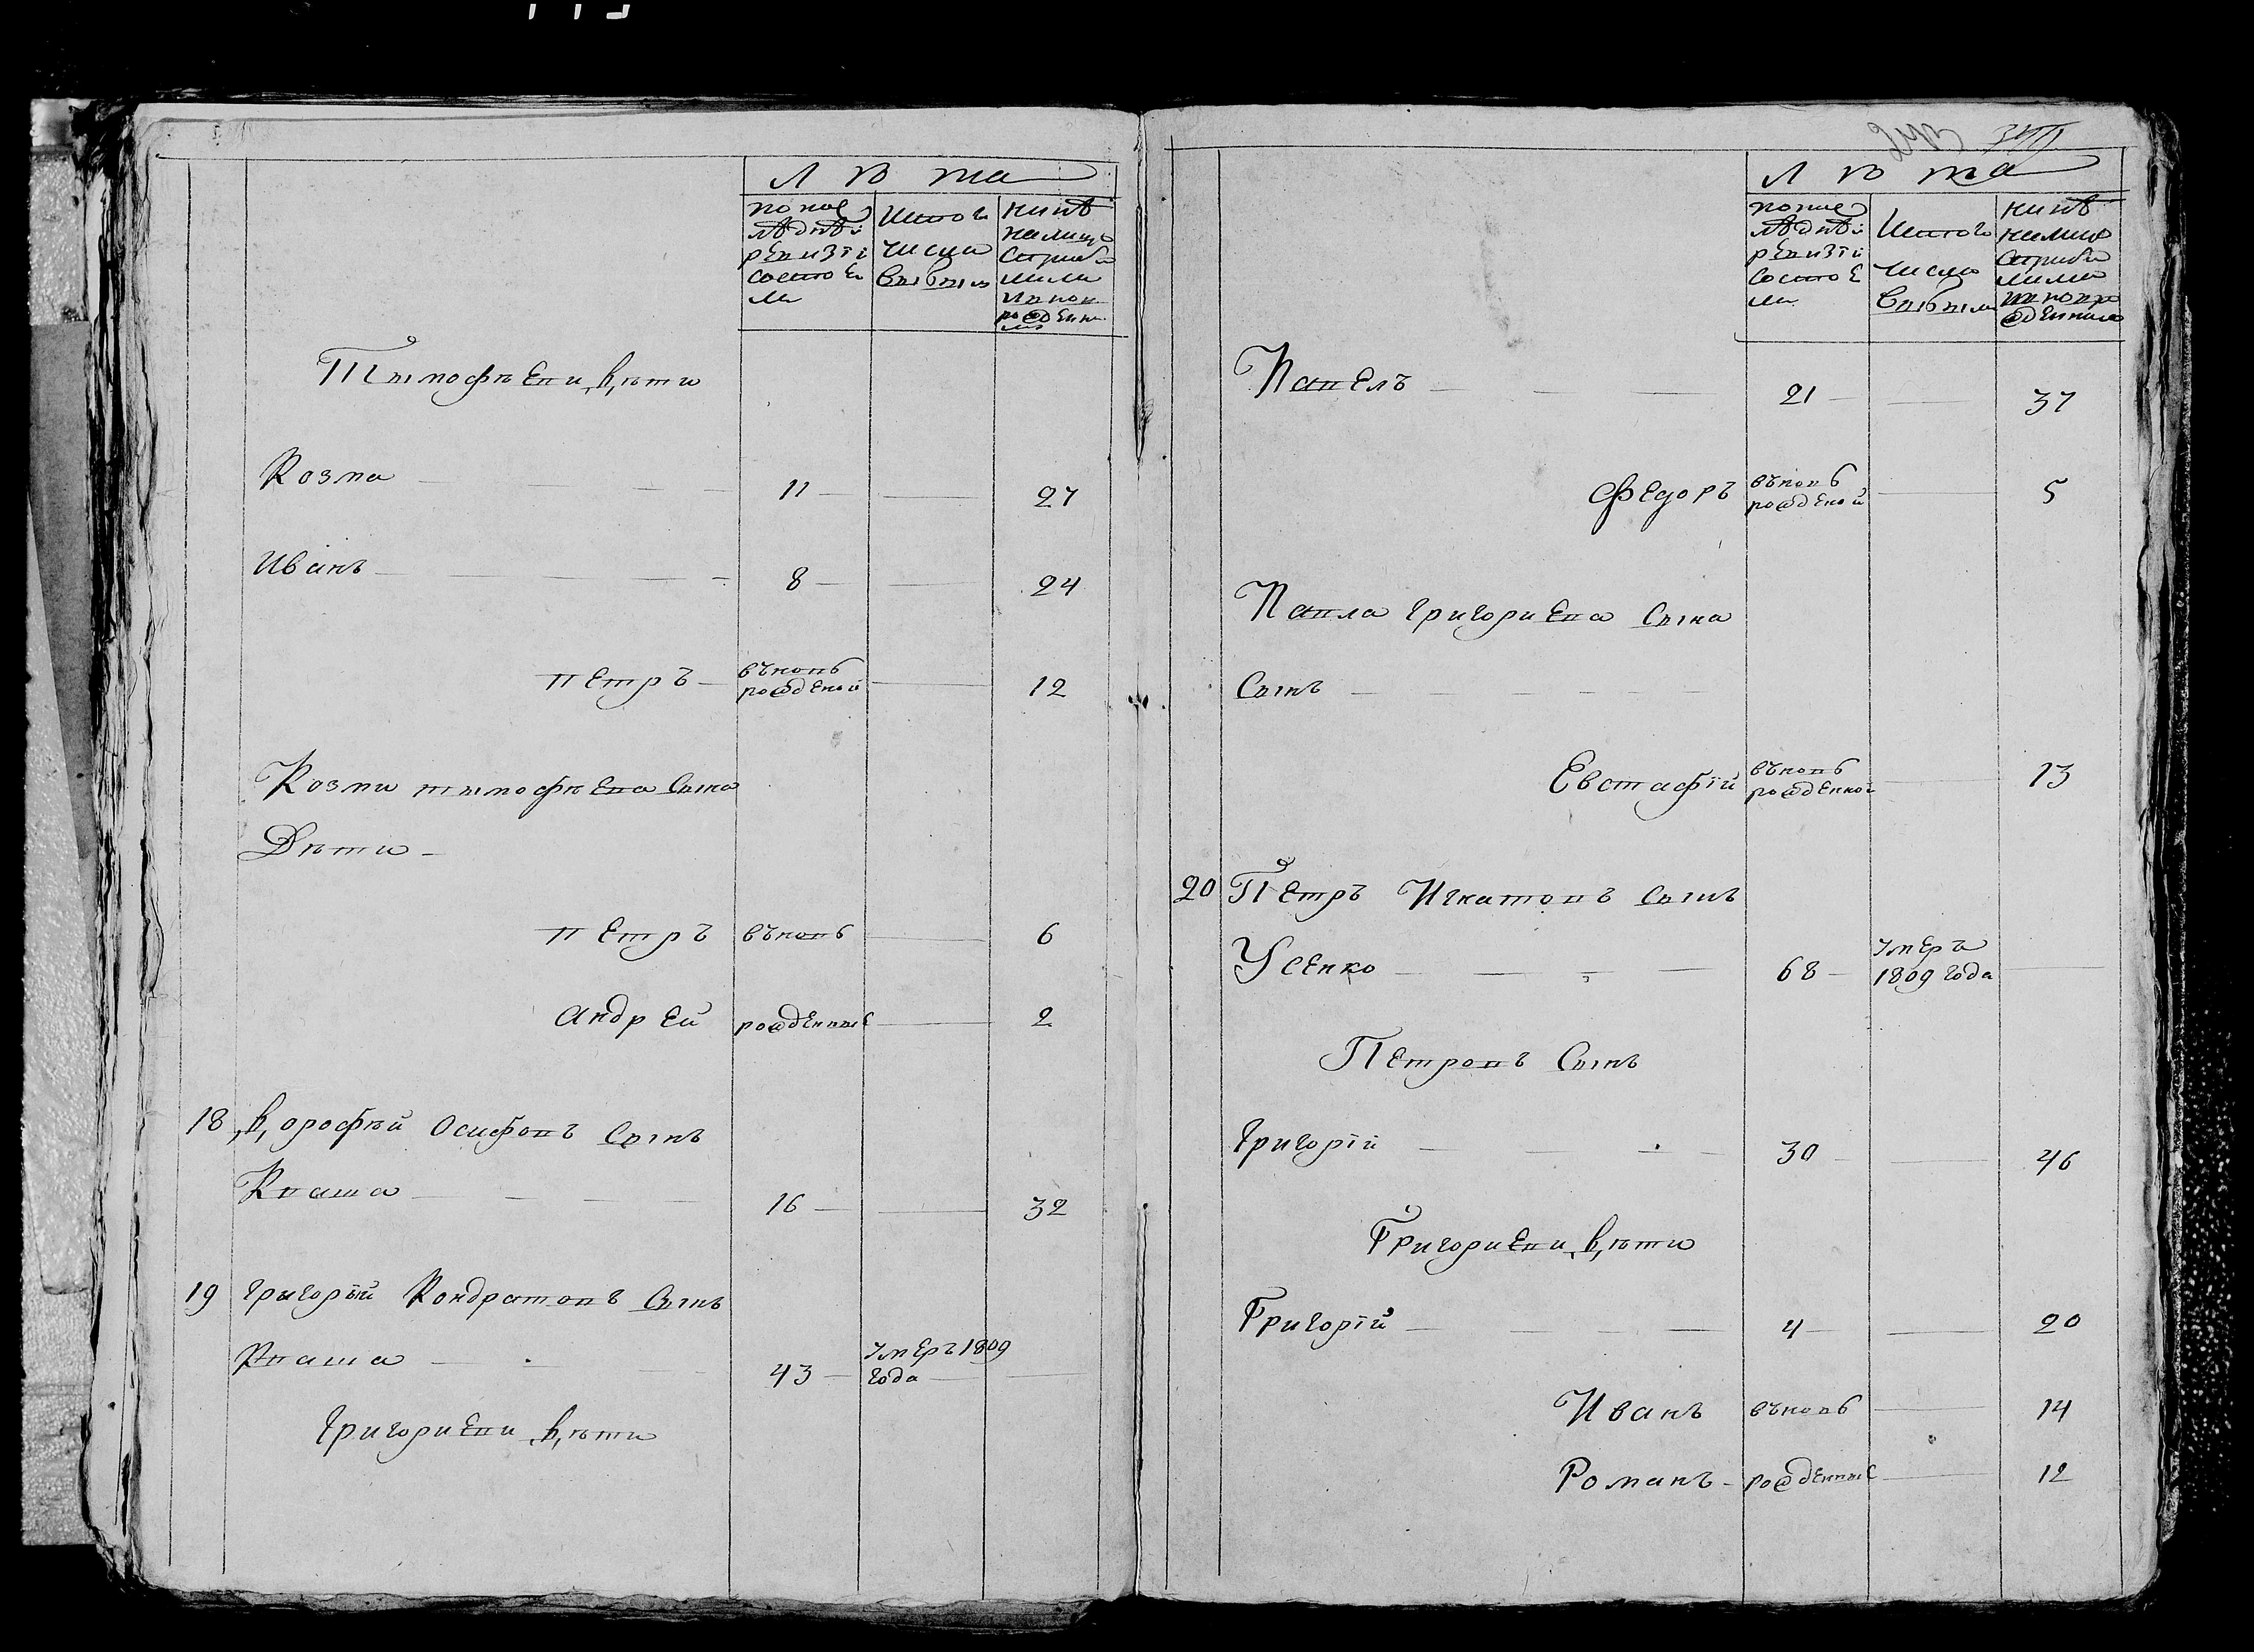 Лѣта
по пос
лѣднѣй
ревизїи
состоя
ли
Изтого
числа
выбыли
нинѣ
налицо
съприбы
лыми
и внов
рожденны
мъ
Тымофѣеви дѣти
Козма 11 27
Иванъ 8 24
Петръ въновь рожденой 12
Козми тымофѣева сына
Дѣти
Петръ въновь 6
Андрей рожденные 2
18 дорофѣй Осифовъ сынъ
Кваша 16 32
19 Григорый Кондратовъ сынъ
Кваша 43 умеръ 1809 года
Григориеви дѣти
Лѣта
по пос
лѣднѣй
ревизїи
состоя
ли
Изтого
числа
выбыли
нинѣ
налицо
съприбы
лыми
и новоро
жденнимъ
Павелъ 21 37
Федоръ въновь рожденой 5
Павла Григориева сына
Сынъ
Евстафїй въновь рожденной 13
20 Петръ Игнатовъ сынъ
Усенко 68 умеръ 1809 года
Петровъ сынъ
Григорїй 30 46
Григориеви дѣти
Григорїй 4 20
Иванъ въновь 14
Романъ рожденные 12